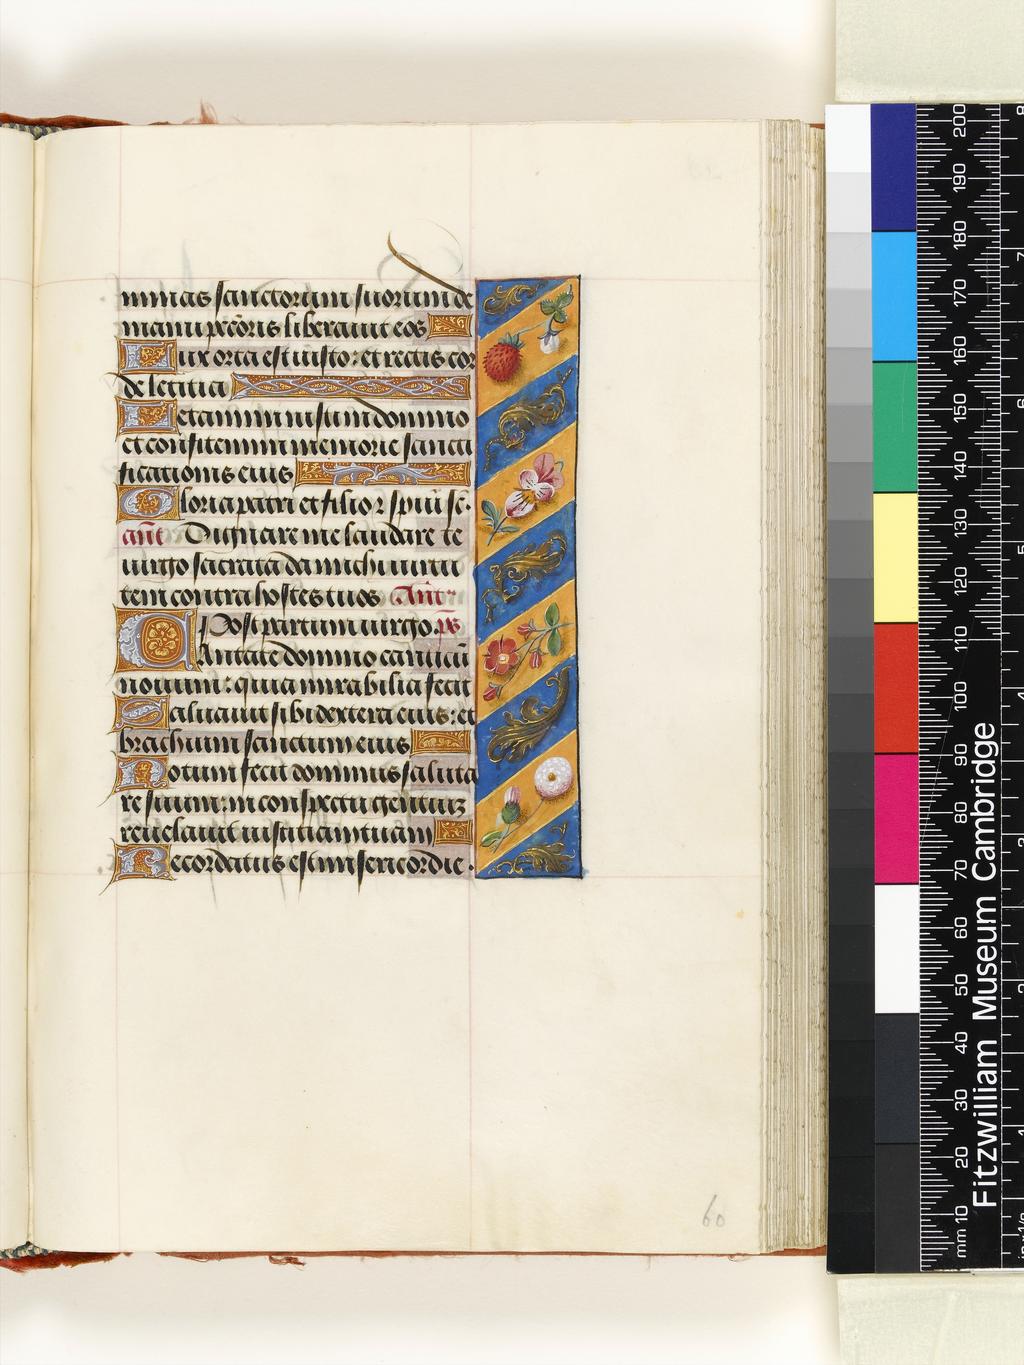 nimas sanctorum suorum de
manu pctoris liberauit eos
Lux orta est iusto: et rectis cor
de letitia
Letamini iusti in domino
et confitemini memorie sancti
ficationis eius
Gloria patri et filio ⁊ spiui sc.
ant Dignare me laudare te
uirgo sacrata da michi uirtu
tem contra hostes tuos Ant
Post partum uirgo. ps
Cantate domino canticū
nouum: quia mirabilia fecit
Saluauit sibi dextera eius: et
brachium sanctum eius
Notum fecit dominus saluta
re suum: in conspectu gentiuꝫ
reuelauit iustitiam tuam
Recordatus est misericordie.
60
mm 10 20 30 40 50 60 70 80 90 100 110 120 130 140 150 160 170 180 190 200
Fitzwilliam Museum Cambridge